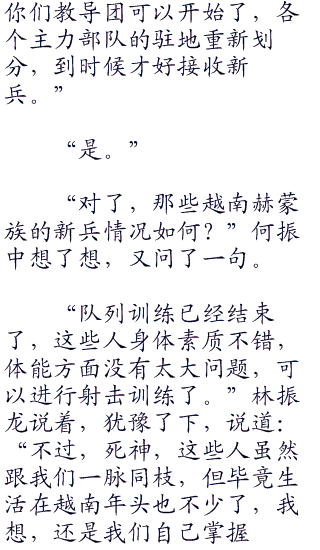 你们教导团可以开始了，各
个主力部队的驻地重新划
分，到时候才好接收新
兵。”
“是。”
“对了，那些越南赫蒙
族的新兵情况如何？”何振
中想了想，又问了一句。
“队列训练已经结束
了，这些人身体素质不错，
体能方面没有太大问题，可
以进行射击训练了。”林振
龙说着，犹豫了下，说道：
“不过，死神，这些人虽然
跟我们一脉同枝，但毕竟生
活在越南年头也不少了，我
想，还是我们自己掌握